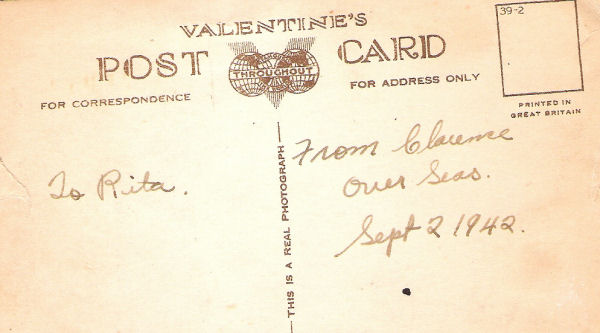 VALENTINE'S
POST CARD
THROUGHOUT
FOR CORRESPONDENCE
FOR ADDRESS ONLY
39-2
PRINTED IN
GREAT BRITAIN
To Rita.
THIS IS A REAL PHOTOGRAPH
From Clarence
Over Seas.
Sept 2 1942.